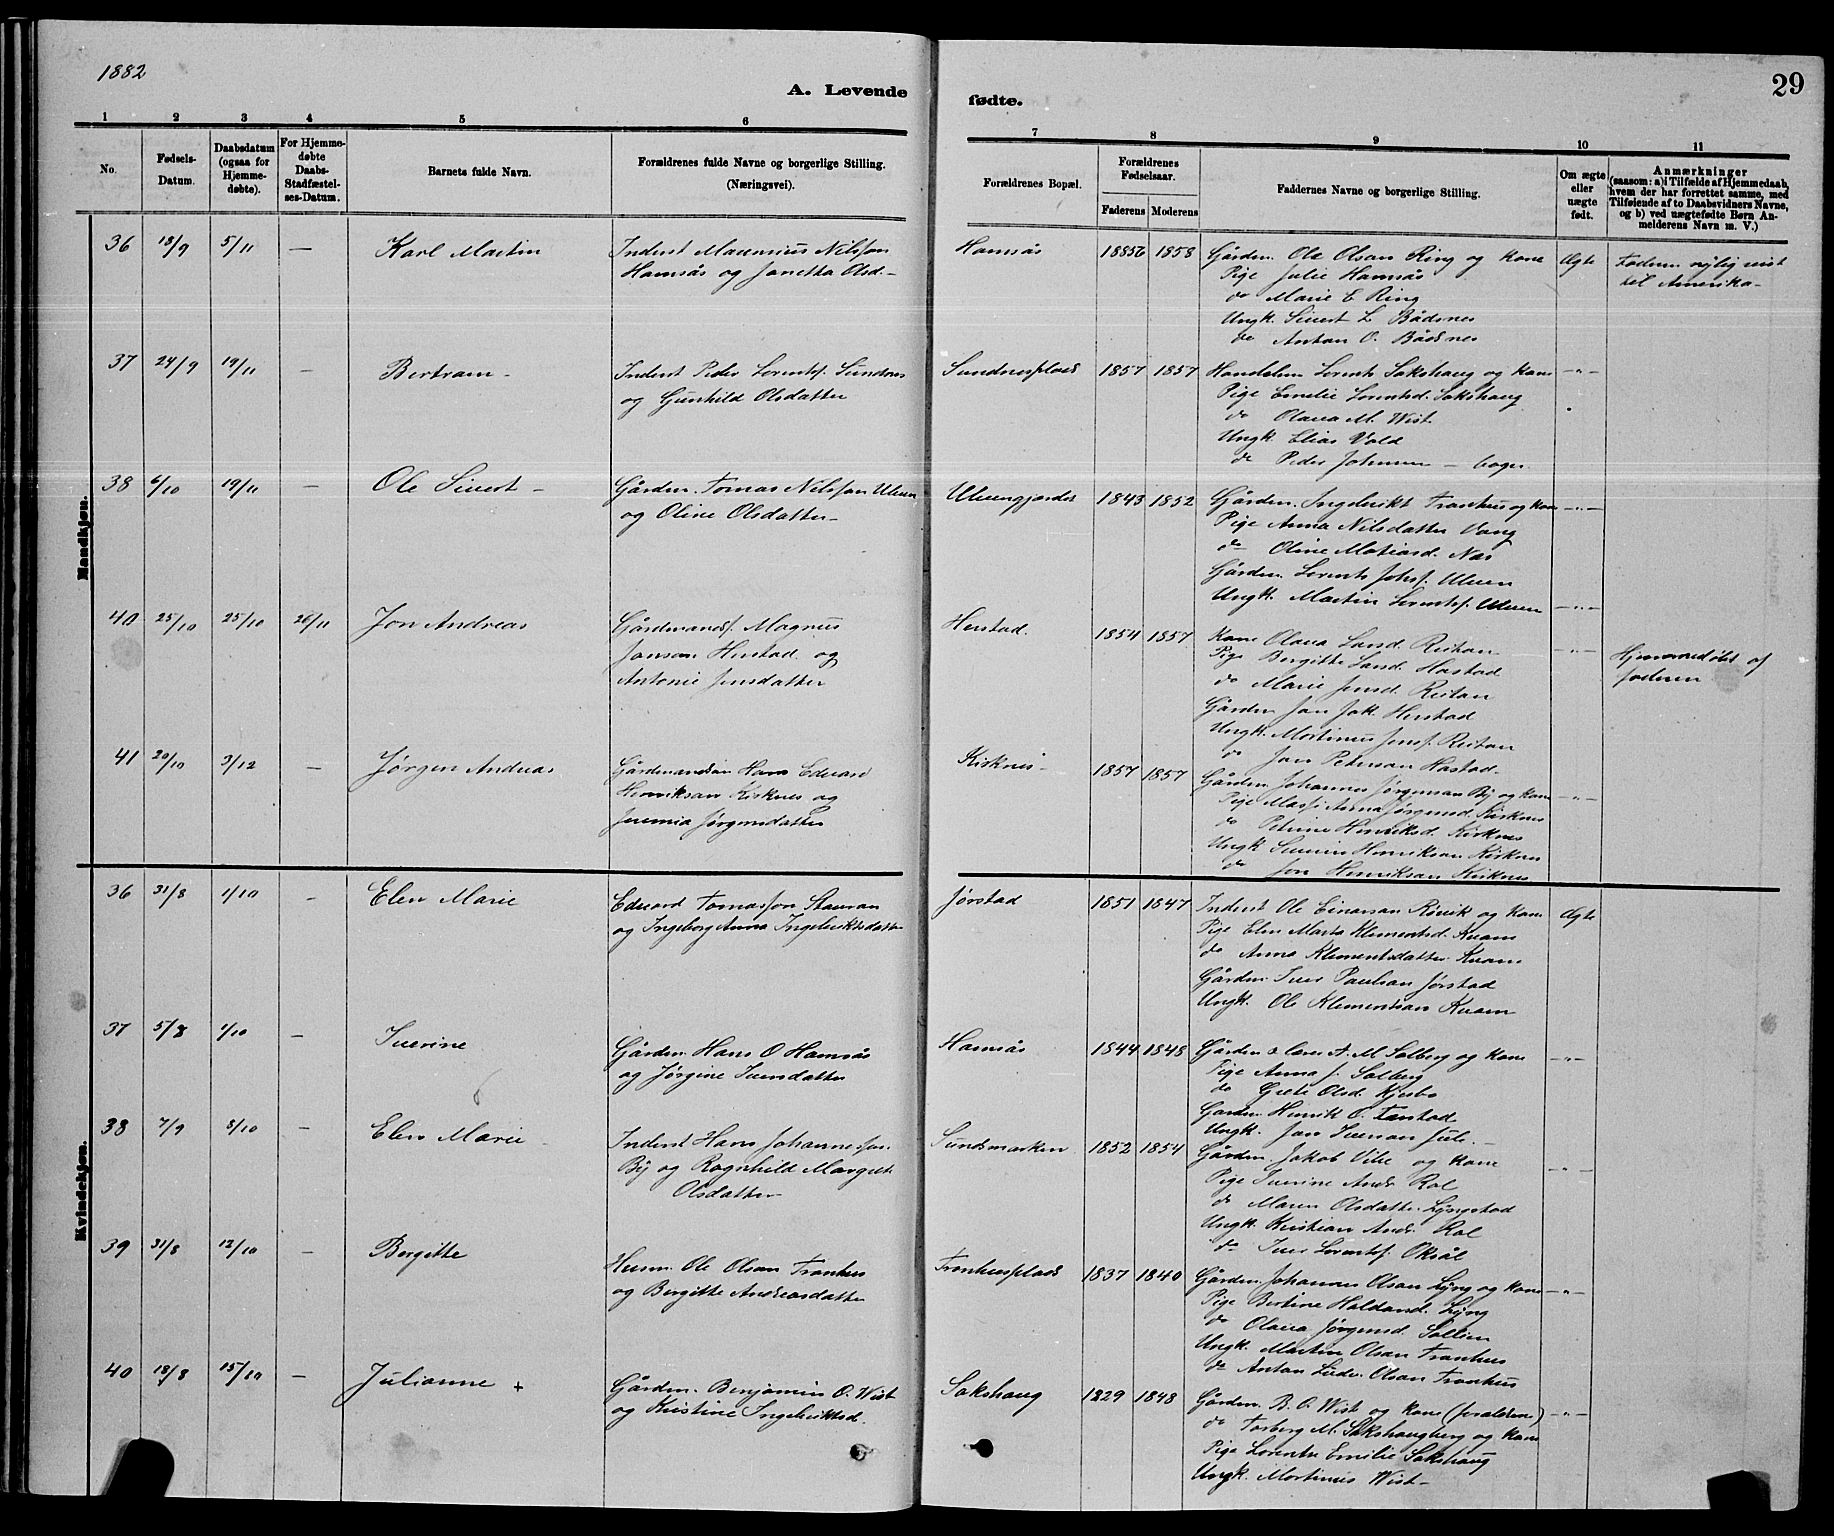 1882
A. Levende
fødte.
29
1 2 3 4 5 6 7 8 9 10 11
No.
Fødsels-Datum.
Daabsdatum (ogsaa for Hjemmedøbte).
For Hjemmedøbte Daabs-Stadfæstelses-Datum.
Barnets fulde Navn.
Forældrenes fulde Navne og borgerlige Stilling. (Næringsvei).
Forældrenes Bopæl.
Forældrenes Fødselsaar.
Faderens Moderens
Faddernes Navne og borgerlige Stilling.
Om ægte eller uægte født.
Anmærkninger
(saasom: a) i Tilfælde af Hjemmedaab, hvem der har forrettet samme, med Tilføiende af to Daabsvidners Navne, og b) ved uægtefødte Børn Anmelderens Navn m. V.)
Mandkjøn.
36 18/9 5/11 — Karl Martin
Inderst Maurisius Nilsson
Hamsås og Janetta Olsd.-
Hamsås 1856 1858
Gårdm. Ole Olsan Ring og Kone Ægte
Pige Julie Hamsås
do Marie E Ring
Ungk. Sivert L Bådsnes
do Antan O. Bådsnes
Faderen nylig reist
til Amerika-
37 24/9 19/11 - Bertram-
Inderst Peder Lorentsf. Sundnes
og Gunhild Olsdatter
Sundnesplads 1857 1857
Handelsm Lorents Sakshaug og Kone -"-
Pige Emelie Lorentsd. Sakshaug
do Olava M. Wist
Ungk. Elias Vold
do Peder Johnsen -
38 6/10 19/11 - Ole Sivert -
Gårdm. Tomas Nilsson Ulven
og Oline Olsdatter-
Ulvengjerdet 1843 1852
Gårdm. Ingebrikt Tranhus og Kone -"-
Pige Anna Nilsdatter Vang
do Oline Matiasd. Nas
Gårdm. Lorents Johsf. Ulven
Ungk. Martin Lorentsf. Ulven -"-
40 25/10 25/10 26/11 Jon Andreas
Gårdmandsf. Magnus
Jonsen Herstad og
Antonie Jensdatter
Herstad. 1854 1857
Kone Olava Larsd. Reitan -"-
Pige Bergitte Larsd. Hastad
do Marie Jensd. Reitan
Gårdm Jon Jak. Herstad
Ungk. Mortinus Jensf. Reitan
do Jon Petersen Hastad-
Hjemmedøbt af
faderen
41 20/10 3/12 - Jørgen Andreas
Gårdmandsøn Hans Edvard
Henriksen Kirknes og
Jeremia Jørgensdatter
Kirknes- 1857 1857
Gårdm. Johannes Jørgensen By og Kone -"-
Pige Anna Jørgensd. Kirknes
do Petrine Henriksd. Kirknes
Ungk Henriksan Kirknes
do Jon Henriksan Kirknes
Kvindekjøn.
36 31/8 1/10 - Elen Marie
Edvard Tomasson Stavran
og Ingeborg Anna Ingebriktsdatter
Jørstad 1851 1847
Inderst Ole Einarsan Røvik og Kone Ægte
Pige Elen Marta Klementsd. Kvam
do Anna Klementsdatter Kvam
Gårdm. Iver Paulsan Jørstad
Ungk. Ole Klementsan Kvam
37 5/8 1/10 - Iverine
Gårdm. Hans O Hamsås
og Jørgine Iversdatter
Hamsås 1844 1848
Gårdm & lærer A. M. Solberg og Kone -"-
Pige Anna J. Solberg
do Grete Olsd. Kjesbo
Gardm. Henrik O. Farstad
Ungk. Jon Iversan Juli.-
38 7/9 8/10 - Elen Marie
Inderst Hans Johannessen
By og Ragnhild Margrete
Olsdatter-
Sundsmarken 1852 1854
Gårdm. Jakob Vibe og Kone -"-
Pige Iverine Andr Rol
do Maren Olsdatter Lyngstad
Ungk. Kristian Andr. Rol
do Iver Lorentsf. Oksål
39 31/8 12/10 - Bergitte
Husm. Ole Olsan Tranhus
og Bergitte Andreasdatter
Tranhusplads 1837 1840
Gårdm. Johannes Olsan Lyng og Kone -"-
Pige Bertine Haldorsd. Lyng
do Olava Jørgensd. Sollien
Ungk. Martin Olsan Tranhus
do Antan Olsan Tranhus
40 18/8 15/10 - Julianne +
Gårdm. Benjamin O. Wist
og Kristine Ingebriktsd.
Sakshaug 1829 1848
Gårdm. B. O. Wist og Kone (foraldrene) -"-
do Torberg M. Sakshaugberg og Kone
Pige Lorentse Emilie Sakshaug
Ungk. Mortinus Wist-